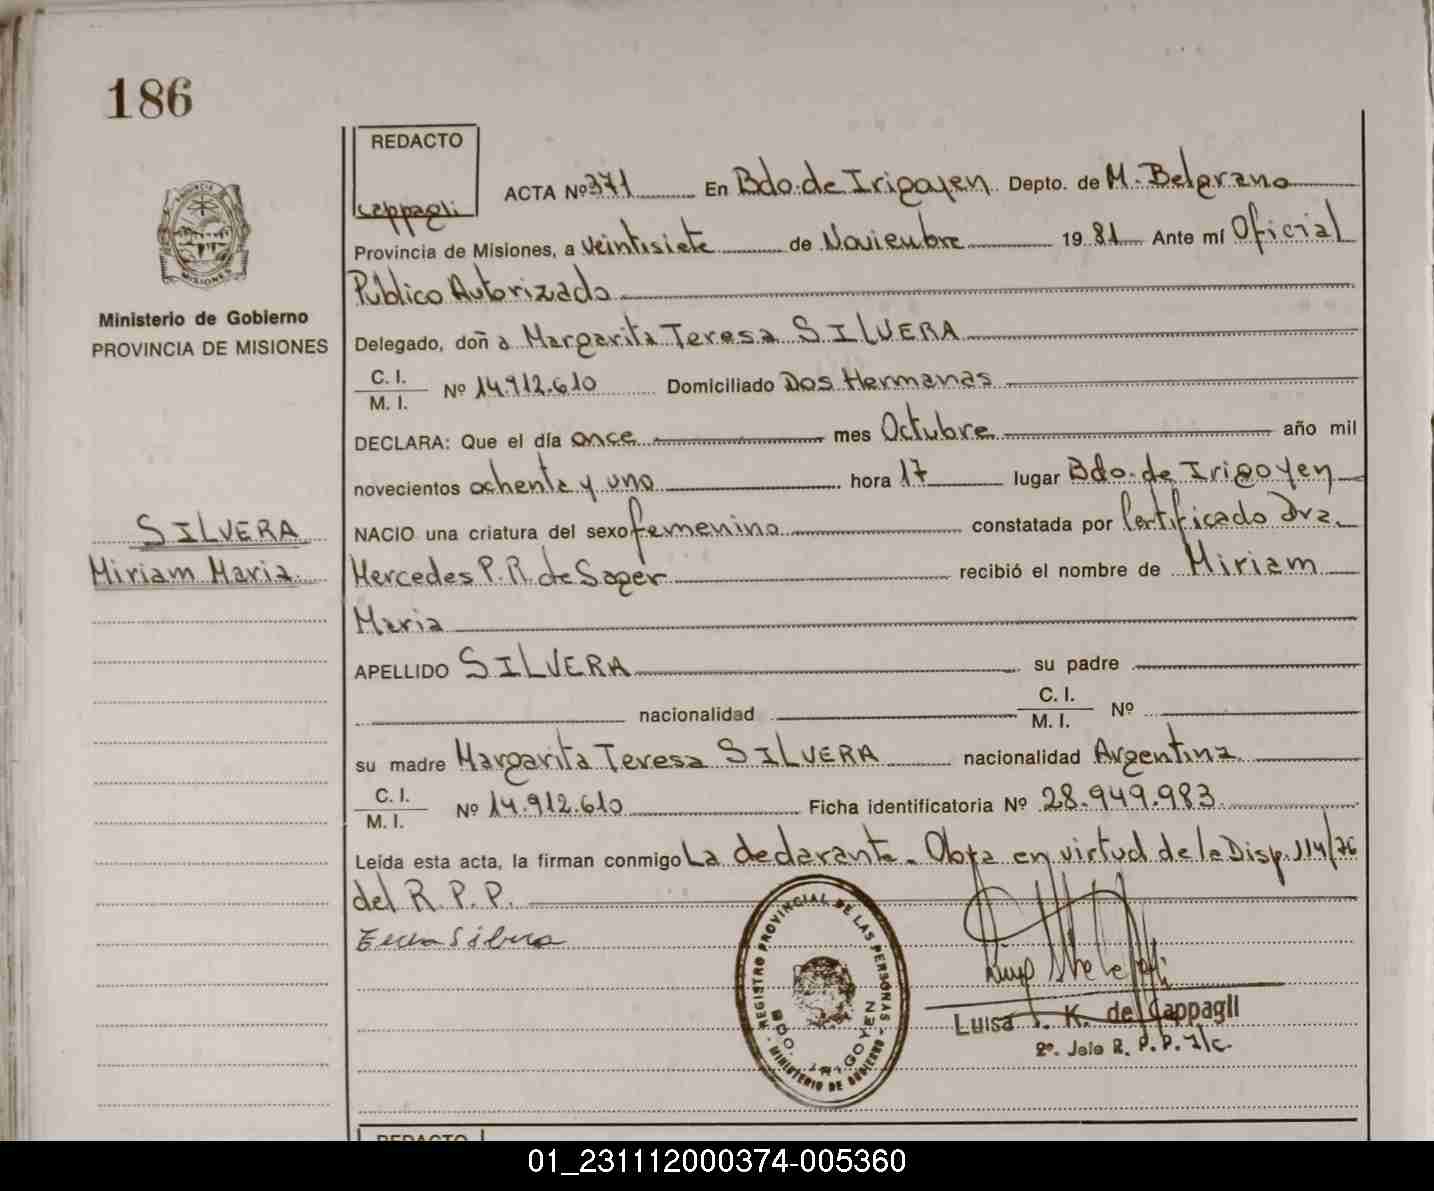 186
REDACTO
Cappagli
ACTA Nº 371 En Bdo. de Irigoyen Depto. de M. Belgrano
Provincia de Misiones, a veintisiete de Noviembre 19 81 Ante mí Oficial
Público Autorizado
Ministerio de Gobierno
PROVINCIA DE MISIONES
Delegado, doñ a Margarita Teresa SILVERA
C. I.
M. I. Nº 14.912.610 Domiciliado Dos Hermanas
DECLARA: Que el día once mes Octubre año mil
novecientos ochenta y uno hora 17 lugar Bdo. de Irigoyen
SILVERA
Miriam Maria
NACIO una criatura del sexo femenino constatada por Certificado Dra.
Mercedes P. R. de Sager recibió el nombre de Miriam
Maria
APELLIDO SILVERA su padre
nacionalidad C. I.
M. I. Nº
su madre Margarita Teresa SILVERA nacionalidad Argentina
C. I.
M. I. Nº 14.912.610 Ficha identificatoria Nº 28.949.983
Leída esta acta, la firman conmigo La declarante. Obra en virtud de la Disp. 114/76
del R. P. P.
REGISTRO PROVINCIAL DE LAS PERSONAS
BDO. IRIGOYEN
MINISTERIO DE GOBIERNO
Luisa K. de Cappagli
2º. Jefe R. P. P. I/c.
REDACTO
01_231112000374-005360